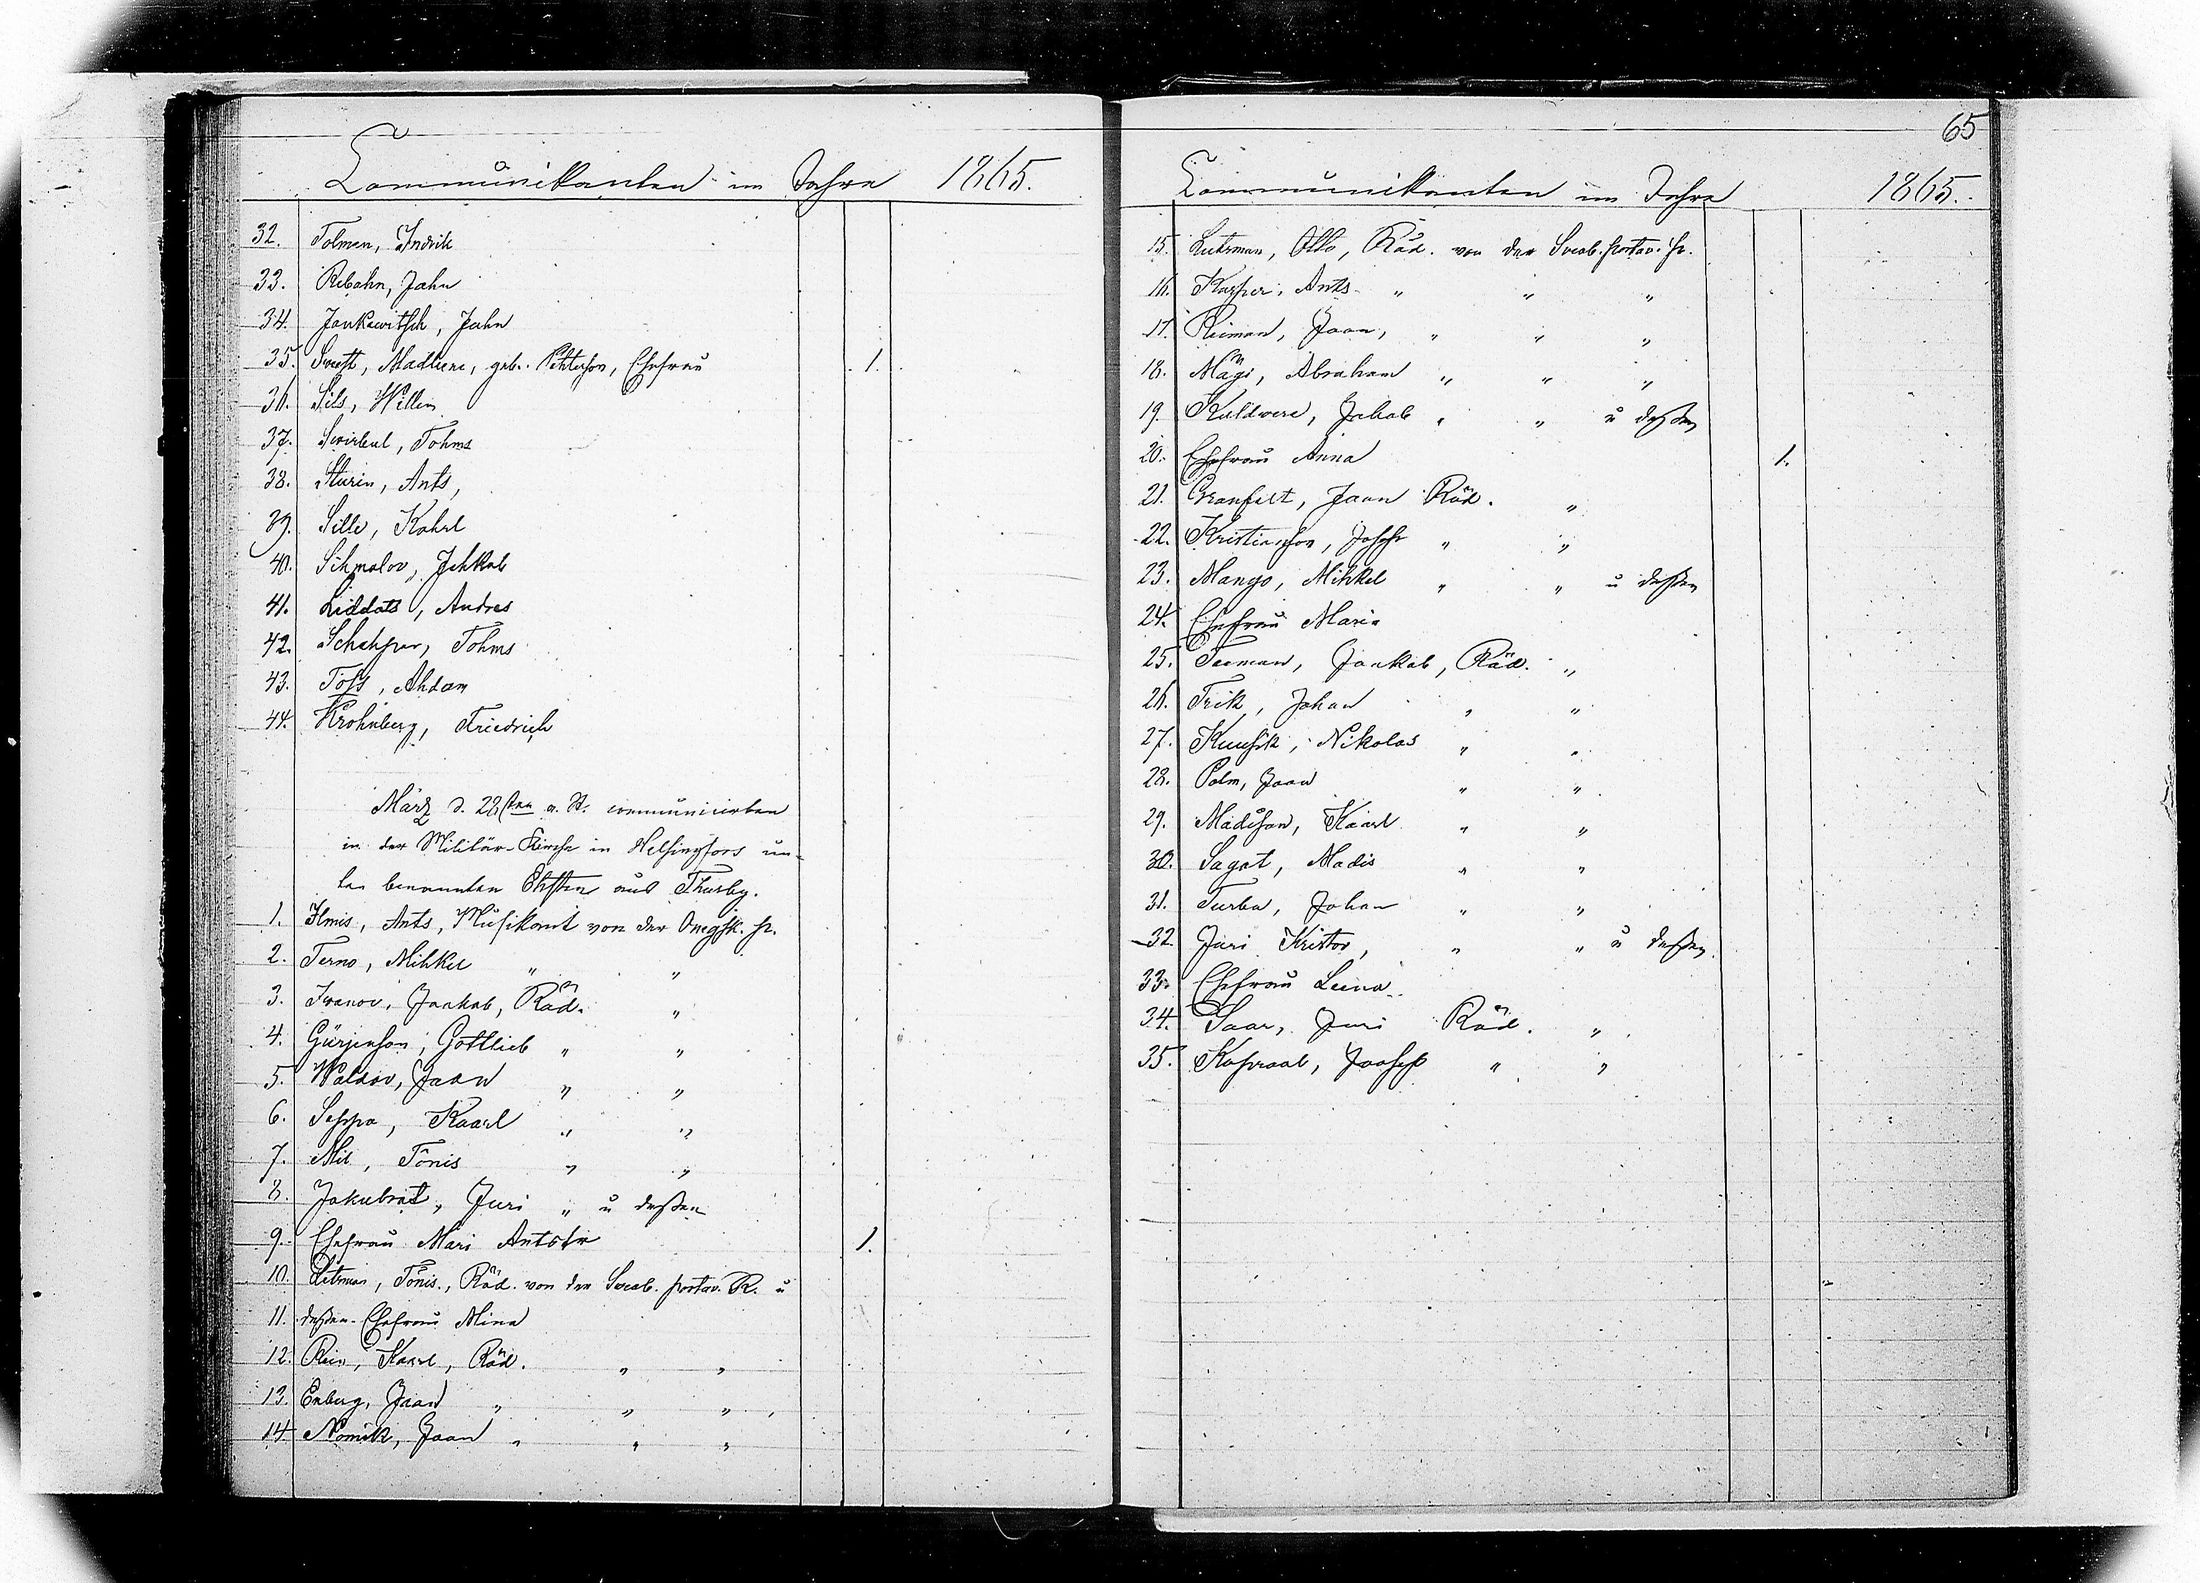 Communikanten im Jahre 1865.
32. Tolmen, Indrik
33. Rebahn, Jahn
34. Jankewitsch, Jahn
35. Madleene, geb. Pehterson, Ehefrau 1.
36. Sils, Willem
37. Swirbul, Tohms
38. Sturin, Ants,
39. Sille, Kahrl
40. Sihmalov, Jehkab
41. Liddats, Andres
42. Tohms
43. Toss, Ahdam
44. Krohnberg, Friedrich
März d. 28sten a. St. communicirten
in der Militär-Kirche in Helsingfors un-
ten benannten Ehsten aus Thusby.
1. Ilmis, Ants, Musikant von der Onegsk. p.
2. Terno, Mihkel " "
3. Iwanov, Jaakab, Räd. "
4. Gürjenson, Gottlieb " "
5. Waldov, Jaan " "
6. Seppa, Kaarl " "
7. Mil, Tõnis " "
8. Jakubrat, Juri " u deßen
9. Ehefrau Mari Antstr 1.
10. Letsman, Tõnis, Räd. von der Sweab. portav. R. u
11. deßen Ehefrau Mina
12. Rein, Kaarl, Räd. " "
13. Enberg, Jaan " " "
14. Nõmik, Jaan " " "
65
Communikanten im Jahre 1865.
15. Lutsman, Otto, Räd. von der Sweab. portav. p.
16. Kasper, Ants " " "
17. Reiman, Jaan, " " "
18. Mägi, Abraham " " "
19. Kuldwere, Jakob " " u deßen
20. Ehefrau Anna 1.
21. Granfelt, Jaan Räd. "
22. Kristianson, Joseph " "
23. Mango, Mihkel " " u deßen
24. Ehefrau Maria
25. Teeman, Jaakab, Räd. "
26. Trik, Johan " "
27. Kuusik, Nikolas " "
28. Palm, Jaan " "
29. Madisson, Kaarl " "
30. Sagat, Madis " "
31. Turba, Johan " "
32. Juri Kristov, " " u deßen
33. Ehefrau Leena
34. Saar, Juri Räd. "
35. Kapraal, Joosep " "